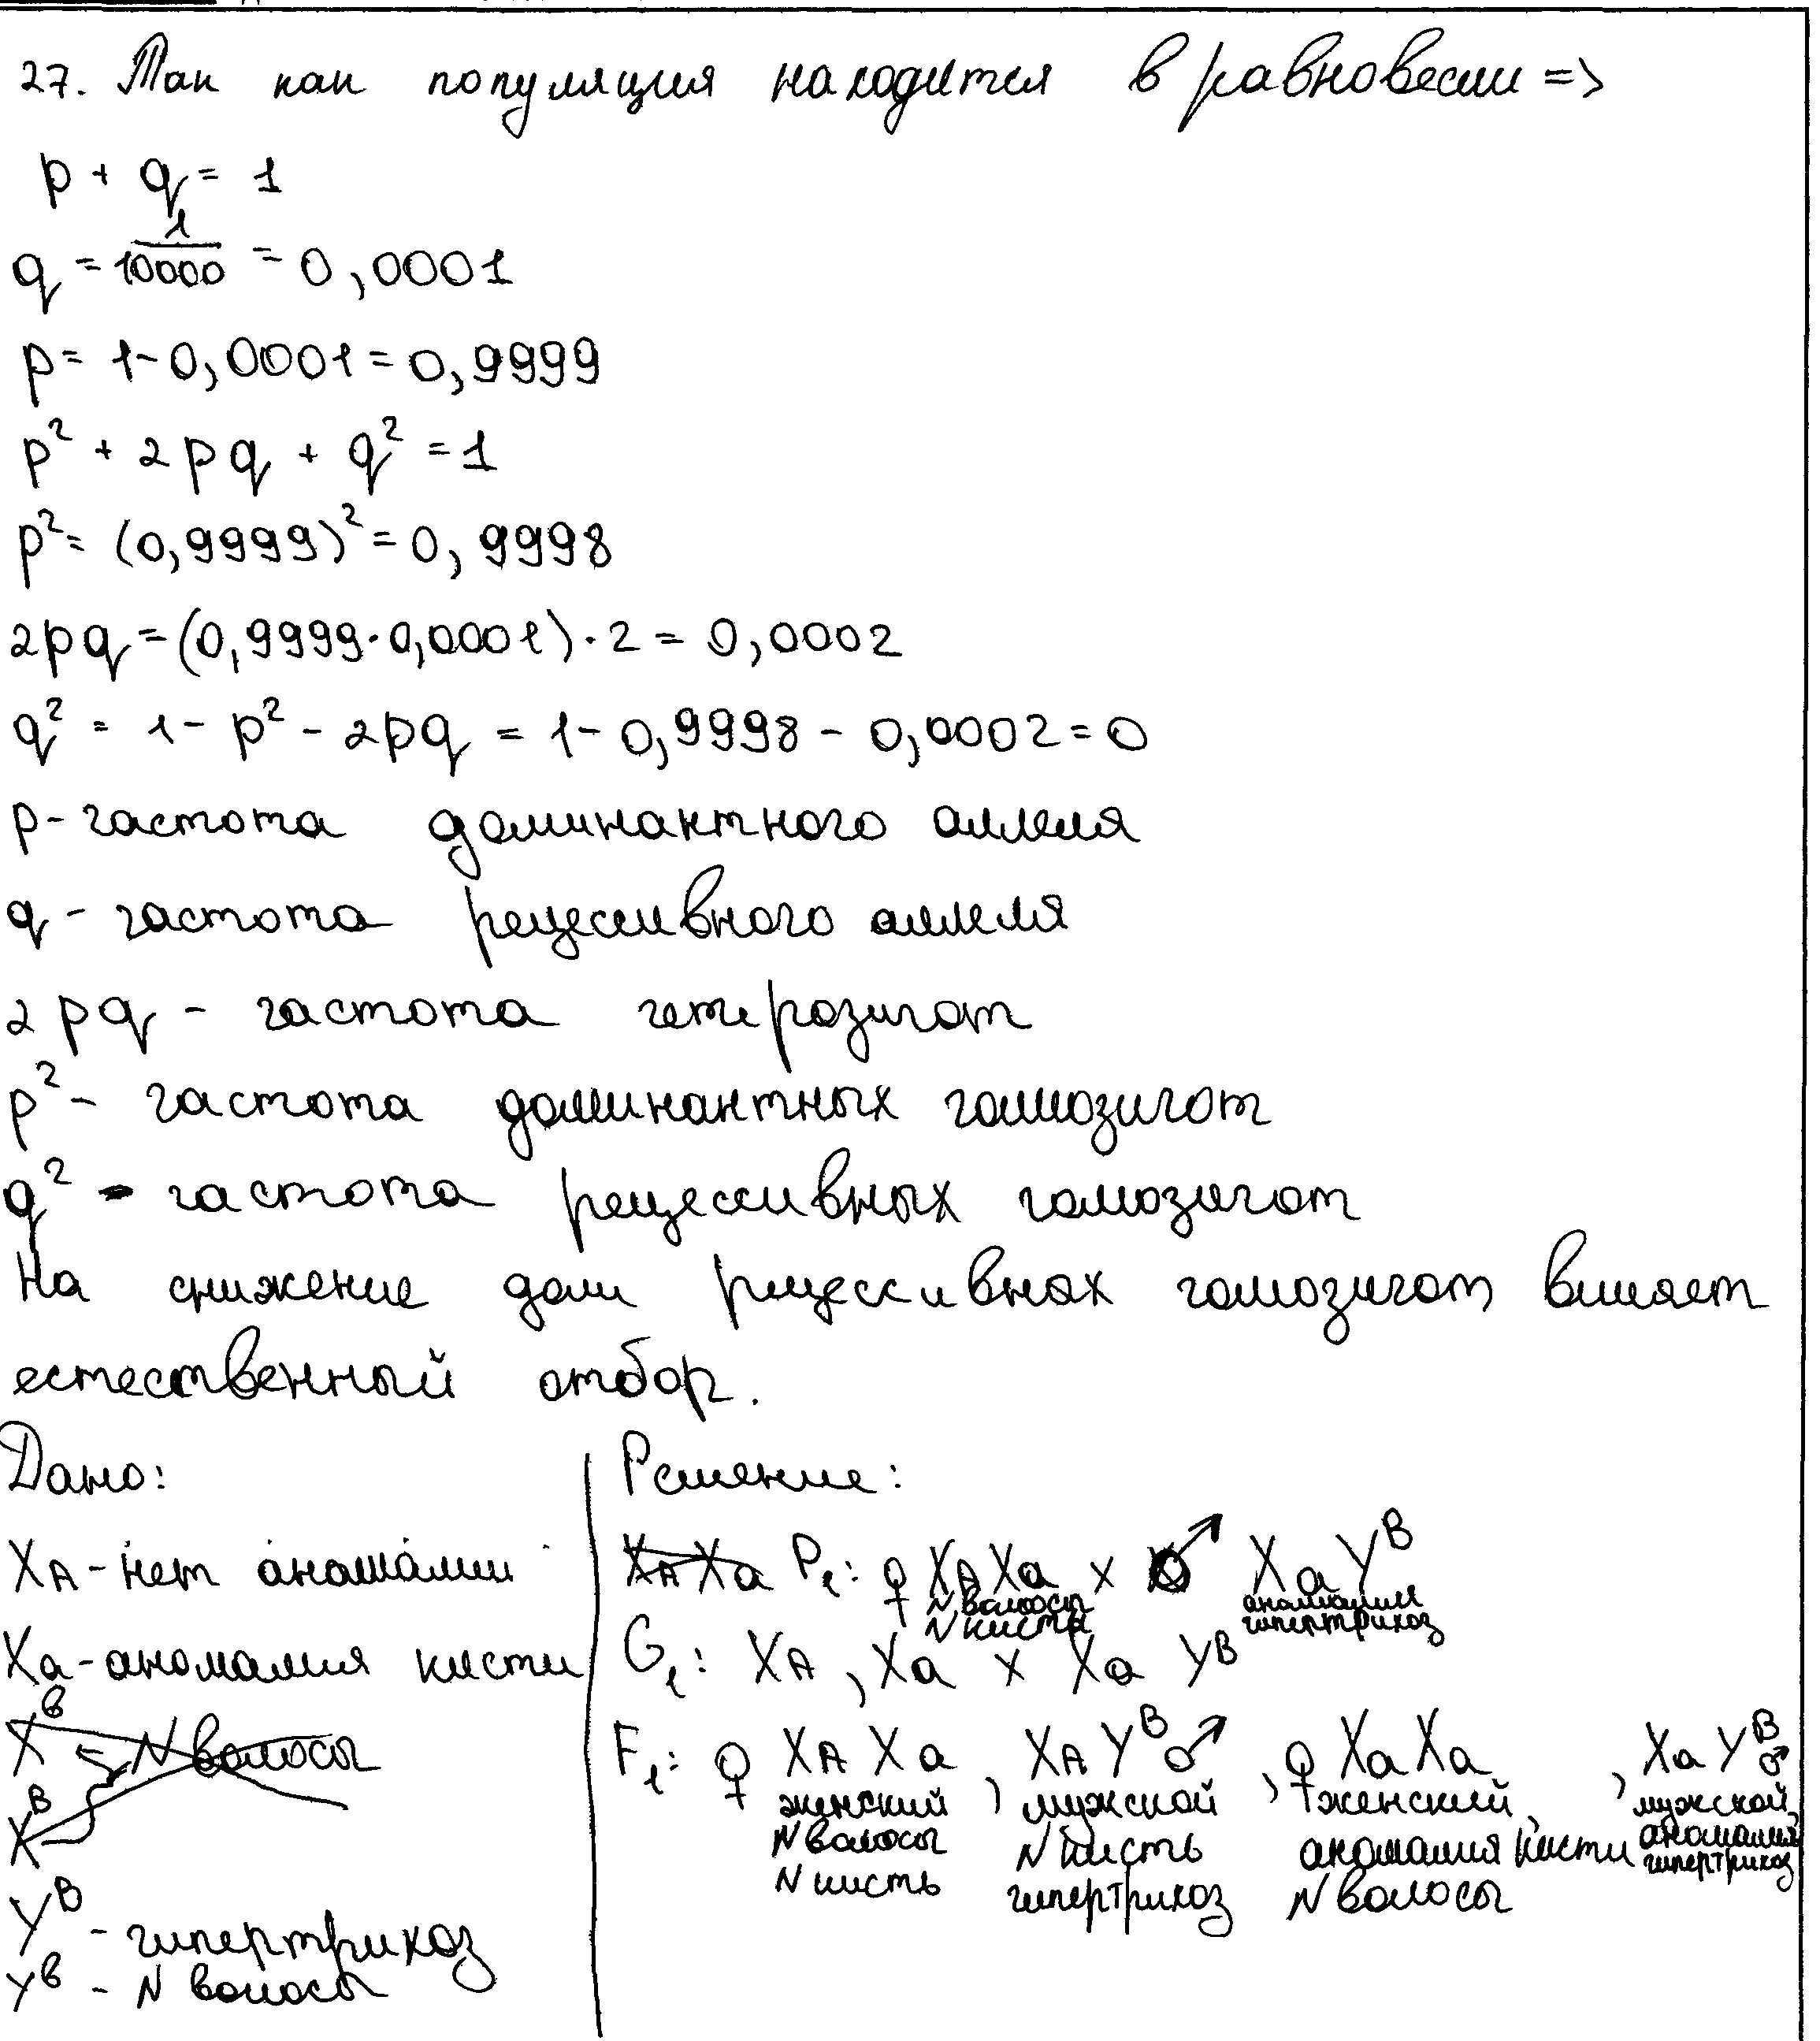 27. Так как популяция находится в равновесии =>
p + q = 1
q = 1/10000 = 0,0001
p = 1 - 0,0001 = 0,9999
p² + 2pq + q² = 1
p² = (0,9999)² = 0,9998
2pq = (0,9999·0,0001)·2 = 0,0002
q² = 1 - p² - 2pq = 1 - 0,9998 - 0,0002 = 0
p - частота доминантного аллеля
q - частота рецессивного аллеля
2pq - частота гетерозигот
p² - частота доминантных гомозигот
q² - частота рецессивных гомозигот
На снижение доли рецессивных гомозигот влияет
естественный отбор.
Дано:
X_A - нет аномалии
X_a - аномалия кисти
X^b
N волосы
X^B
Y^B - гипертрихоз
Y^b - N волосы
Решение:
X_A X_a P₁: ♀ X_A X_a x ♂ X_a Y^B
N волосы аномалия
N кисть гипертрихоз
G₁: X_A, X_a x X_a Y^B
F₁: ♀ X_A X_a, X_A Y^B ♂, ♀ X_a X_a, X_a Y^B ♂
женский мужской женский мужской
N волосы N кисть аномалия кисти аномалия
N кисть гипертрихоз N волосы гипертрихоз